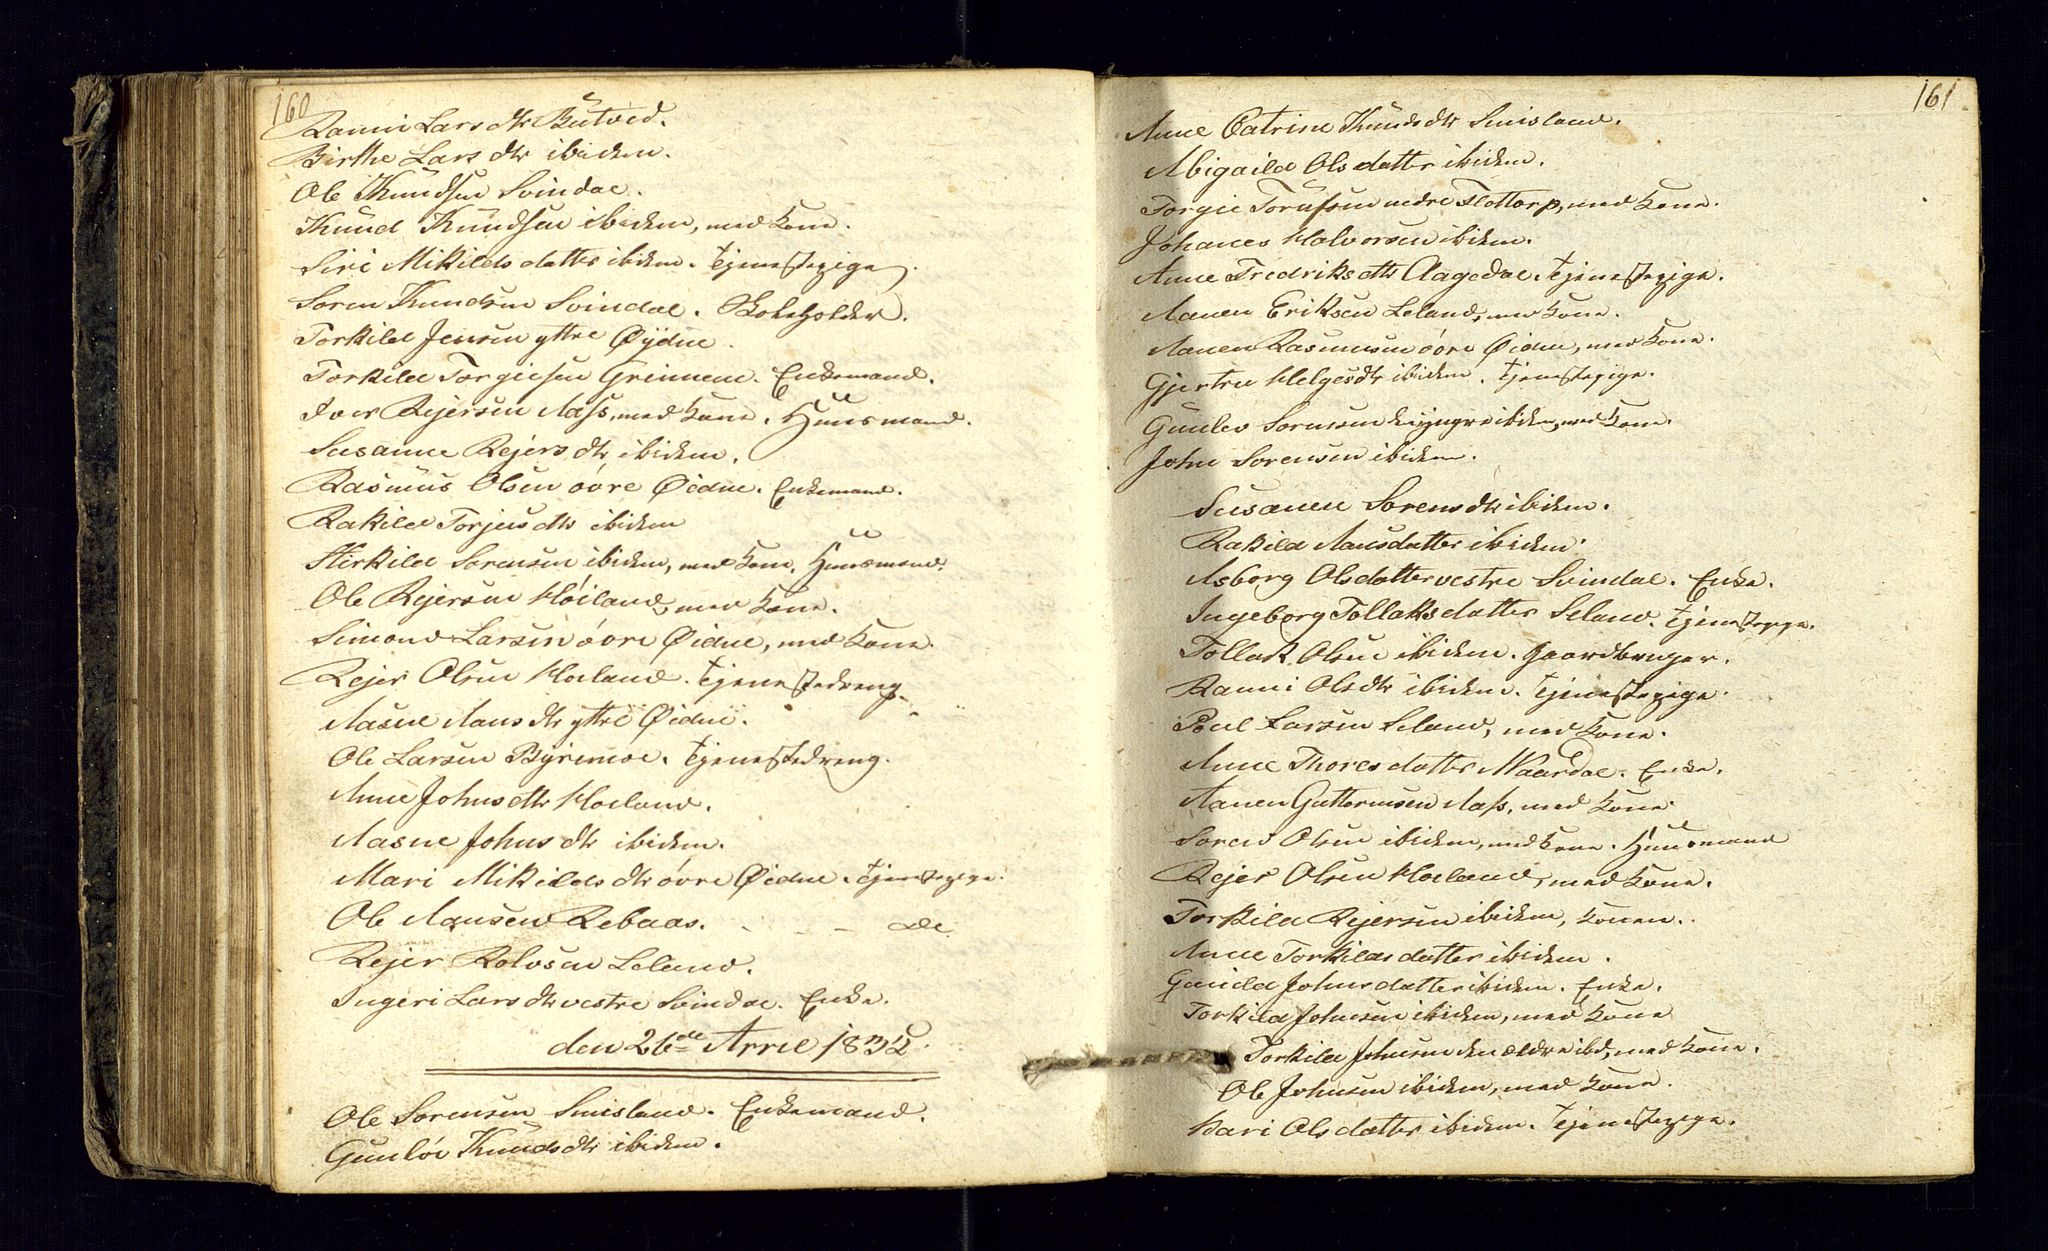 160
Ranni Lars dtr Butved.
Birthe Lars dtr ibidem.
Ole Knudsen Svindal.
Knud Knudsen ibidem, med Kone.
Siri Mikildsdatter ibidem. Tjenestepige.
Soren Knudsen Svindal. Skoleholder.
Torkild Jensen yttre Øydne.
Torkild Torgiesen Grimnem. Enkemand.
Iver Rejersen Aass, med Kone. Huusmand.
Susanne Rejers dtr ibidem.
Rasmus Olsen övre Øidne. Enkemand.
Rakild Torjus dtr ibidem
Hirkild Sorensen ibidem, med Kone, Huusmand.
Ole Rejersen Höiland, med Kone.
Simond Larsen övre Øidne, med Kone.
Rejer Olsen Hoiland. Tjenestedreng.
Aasne Aans dtr yttre Øidne.
Ole Larsen Byremoe. Tjenestedreng.
Anne Johns dtr Hoiland.
Aasne Johns dtr ibidem.
Mari Mikilds dtr övre Øidne. Tjenestepige.
Ole Aansen Rebaas. - - - do
Rejer Rolvsen Leland.
Ingeri Lars dtr vestre Svindal. Enke.
den 26de April 1832.
Ole Sorensen Smisland. Enkemand.
Gunlöv Knuds dtr ibidem.
161
Anne Catrine Knuds dtr Smisland.
Abigaild Olsdatter ibidem.
Torgie Torufsen nedre Flottorp, med Kone.
Johanes Halvorsen ibidem.
Anne Fredriks dtr Aagedal. Tjenestepige.
Aanen Eriksen Leland, med Kone.
Aanen Rasmusen övre Øidne, med Kone.
Gjertru Helges dtr ibidem. Tjenestepige.
Gunlev Sorensen d: yngre ibidem, med Kone.
John Sorensen ibidem.
Susanne Sorens dtr ibidem.
Rakild Aansdatter ibidem.
Asborg Olsdatter vestre Svindal. Enke.
Ingeborg Tollaksdatter Seland. Tjenestepige.
Tollak Olsen ibidem. Gaardbruger.
Ranni Ols dtr ibidem. Tjenestepige.
Poul Larsen Leland, med Kone.
Anne Thoresdatter Waardal. Enke.
Aanen Guttormsen Aass, med Kone.
Soren Olsen ibidem, med Kone. Huusmand
Rejer Olsen Hoiland, med Kone.
Torkild Rejersen ibidem, Konen.
Anne Torkildsdatter ibidem.
Gunild Johnsdatter ibidem. Enke.
Torkild Johnsen ibidem, med Kone
Torkild Johnsen den ældre ibd, med Kone.
Ole Johnsen ibidem, med Kone.
Kari Olsdatter ibidem. Tjenestepige.